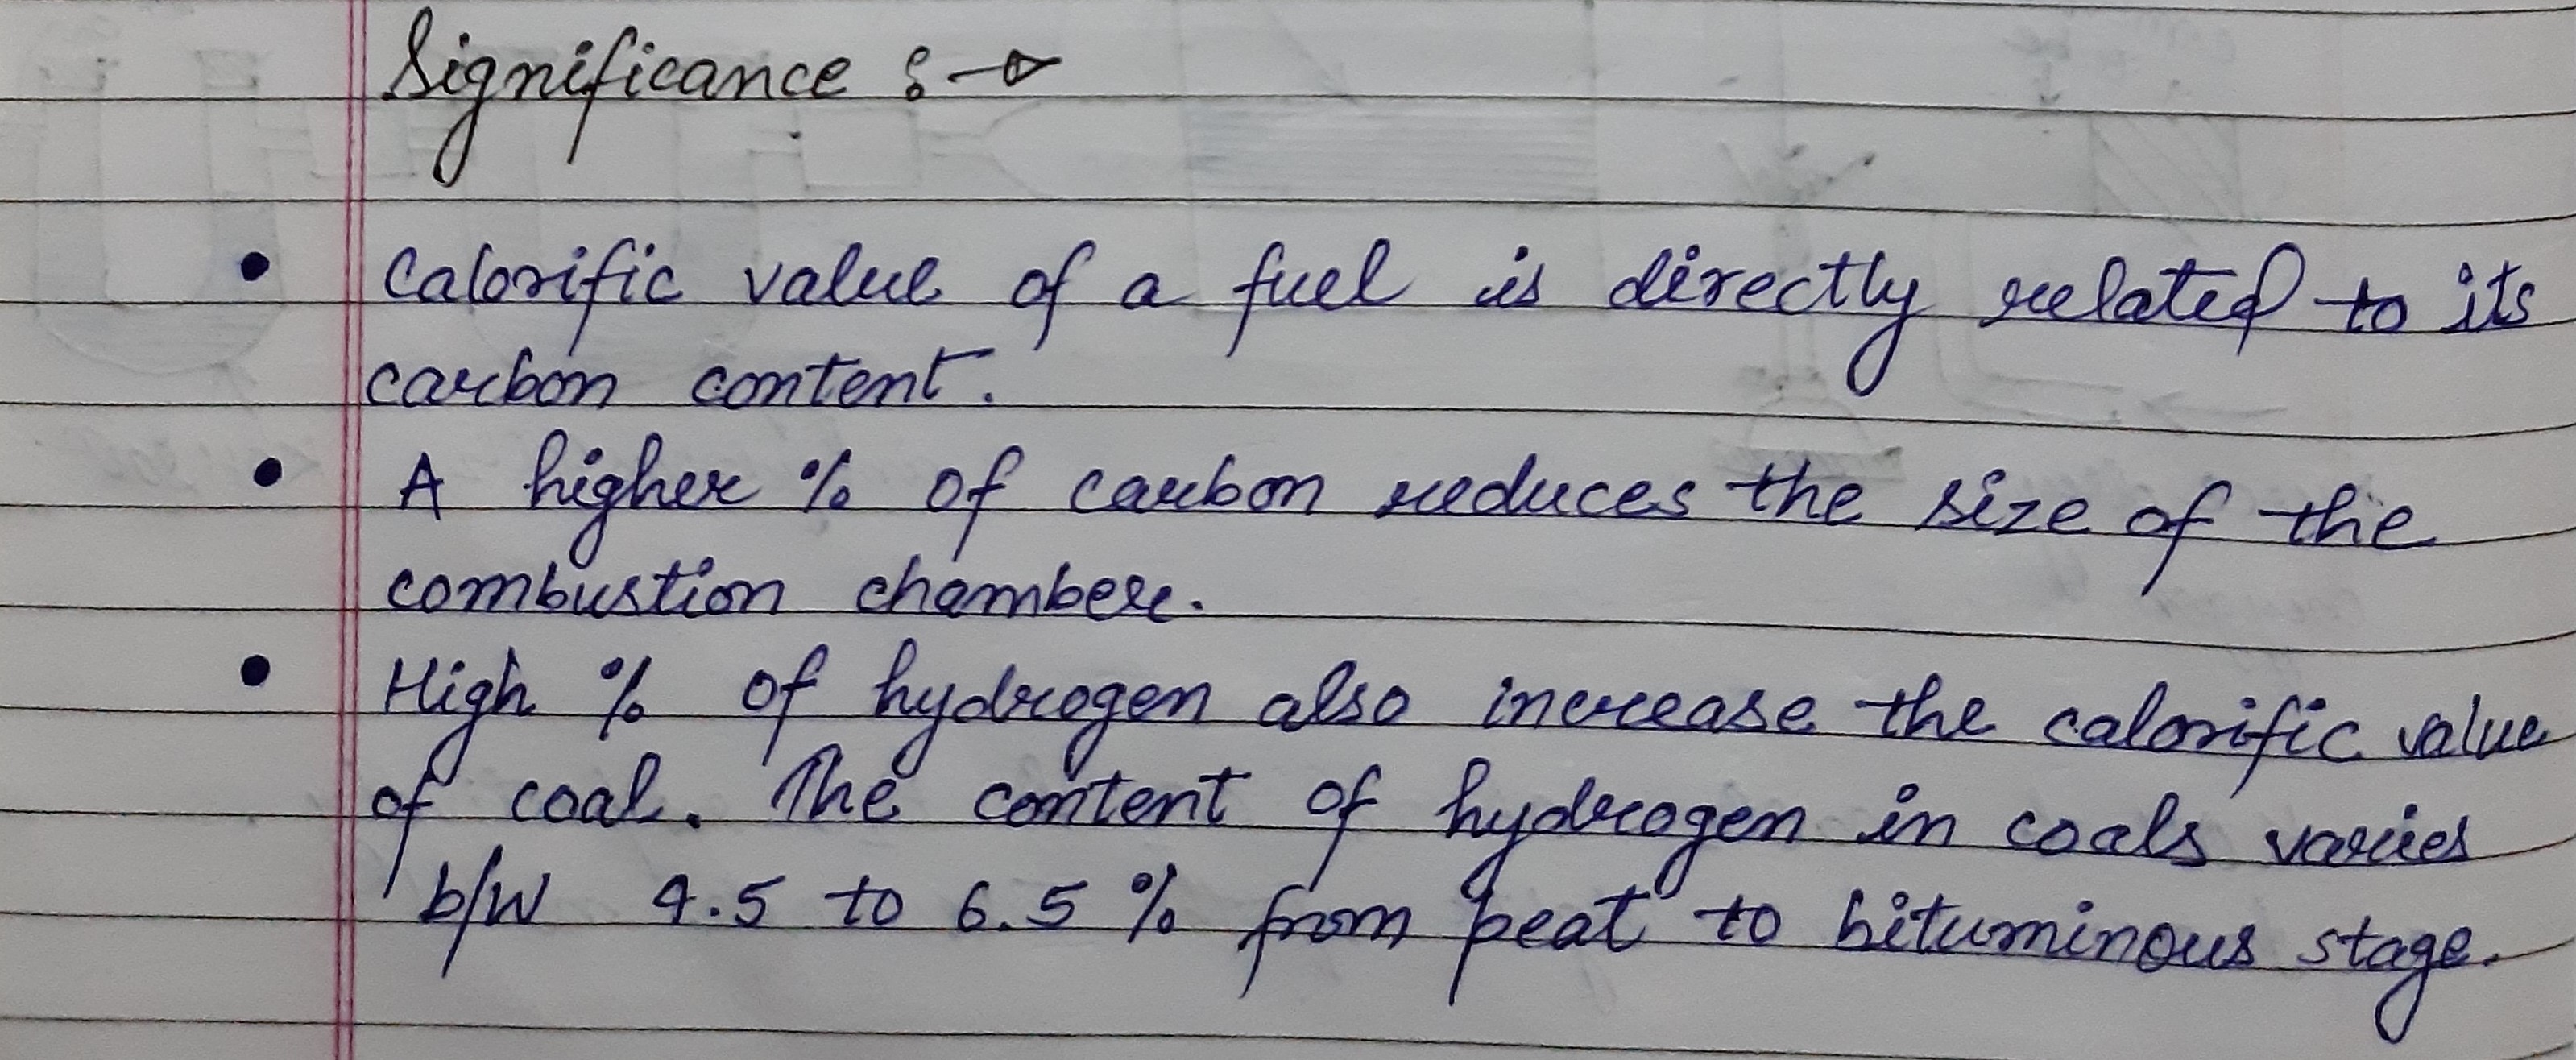 Significance :→
• Calorific value of a fuel is directly related to its
carbon content.
• A higher % of carbon reduces the size of the
combustion chamber.
• High % of hydrogen also increase the calorific value
of coal. The content of hydrogen in coals varies
b/w 4.5 to 6.5 % from peat to bituminous stage.